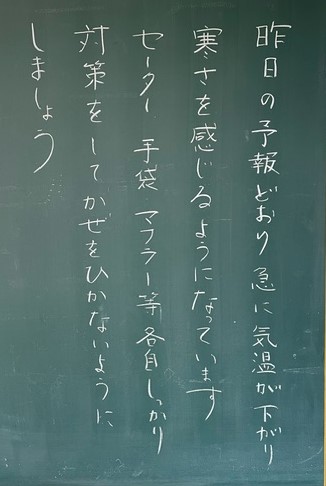 昨日の予報どおり急に気温が下がり
寒さを感じるようになっています
セーター 手袋 マフラー等各自しっかり
対策をしてかぜをひかないように
しましょう